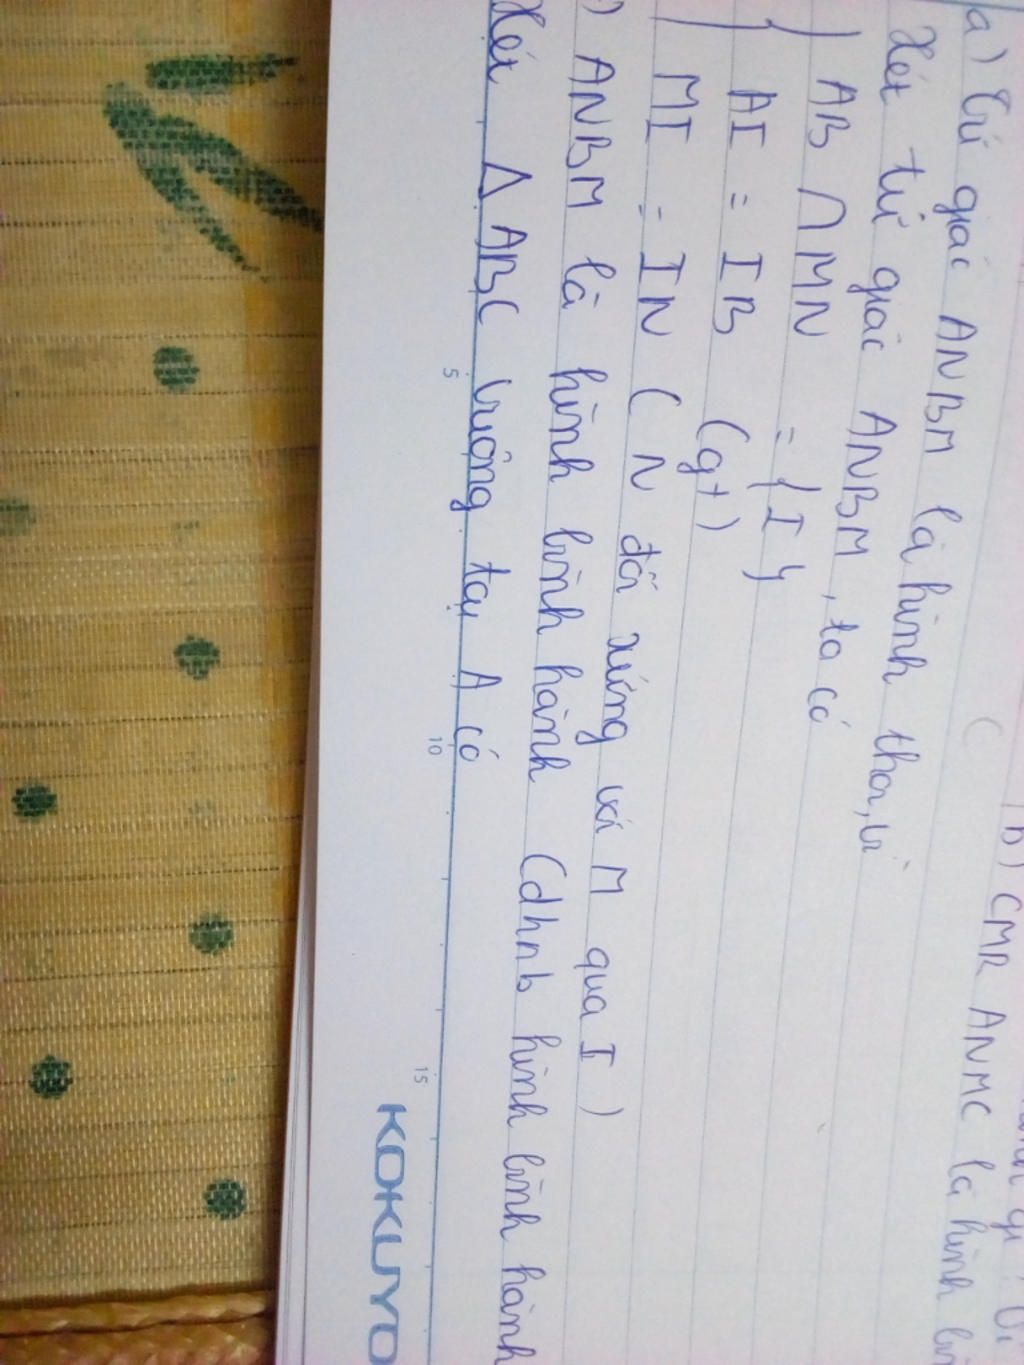 b) CMR ANMC là hình
a) Tứ giác ANBM là hình thoi, vì
Xét tứ giác ANBM, ta có
AB ∩ MN = {I}
AI = IB (gt)
MI = IN (N đối xứng với M qua I)
ANBM là hình bình hành (dhnb hình bình hành
Xét Δ ABC vuông tại A có
5 10 15
KOKUYO